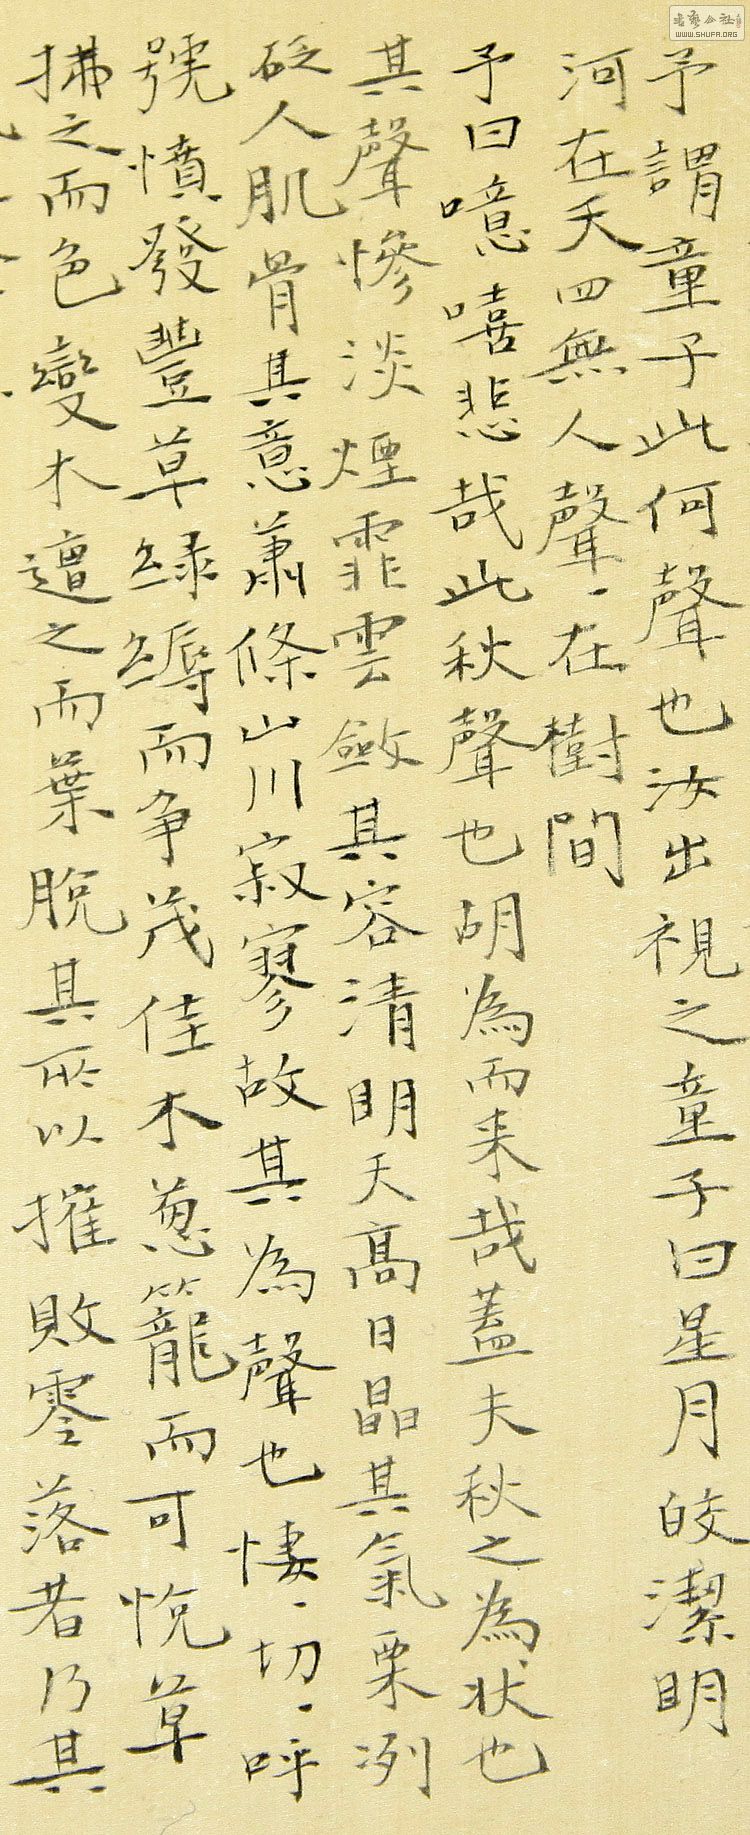 予謂童子此何聲也汝出視之童子曰星月皎潔明
河在天四無人聲、在樹間
予曰噫嘻悲哉此秋聲也胡為而来哉蓋夫秋之為状也
其聲慘淡煙霏雲斂其容清明天高日晶其氣栗冽
砭人肌骨其意蕭條山川寂寥故其為聲也悽、切、呼
號憤發豐草緑縟而争茂佳木葱籠而可悅草
拂之而色變木遭之而葉脫其所以摧敗零落者乃其
書藝公社
WWW.SHUFA.ORG